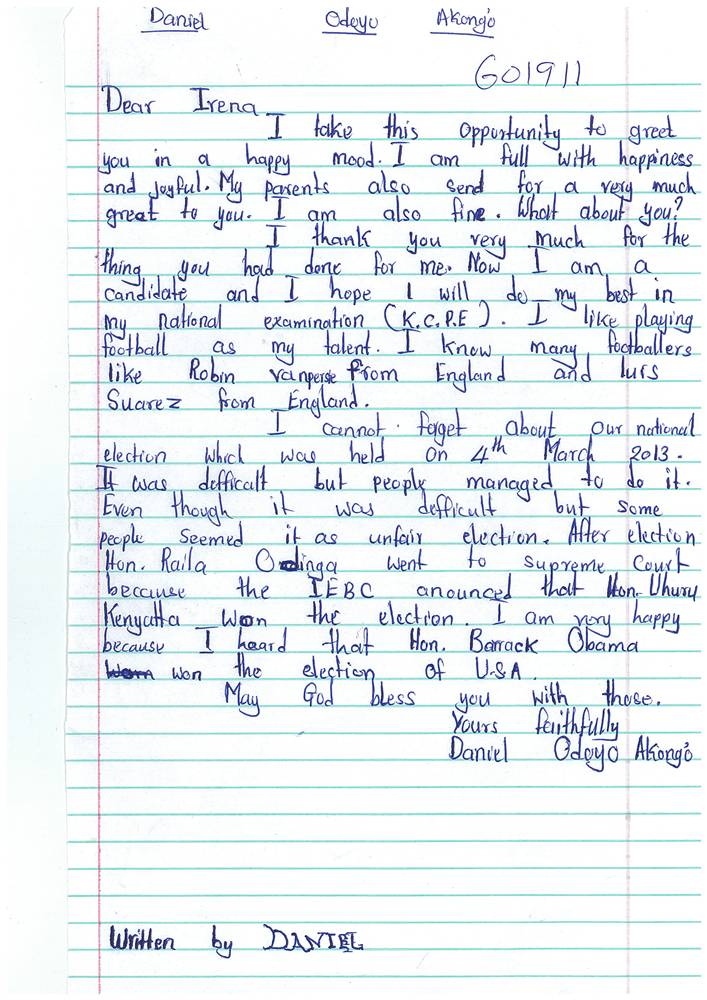 Daniel Odoyo Akong'o
G01911
Dear Irena
I take this opportunity to greet
you in a happy mood. I am full with happiness
and joyful. My parents also send for a very much
great to you. I am also fine. What about you?
I thank you very much for the
thing you had done for me. Now I am a
candidate and I hope I will do my best in
my national examination (K.C.P.E). I like playing
football as my talent. I know many footballers
like Robin vanperse from England and luis
Suarez from England.
I cannot forget about our national
election which was held on 4th March 2013.
It was defficalt but people managed to do it.
Even though it was defficult but some
people seemed it as unfair election. After election
Hon. Raila Odinga went to supreme Court
because the IEBC anounced that Hon. Uhuru
Kenyatta won the election. I am very happy
because I heard that Hon. Barrack Obama
won the election of U.S.A.
May God bless you with those.
Yours faithfully
Daniel Odoyo Akong'o
Written by DANIEL